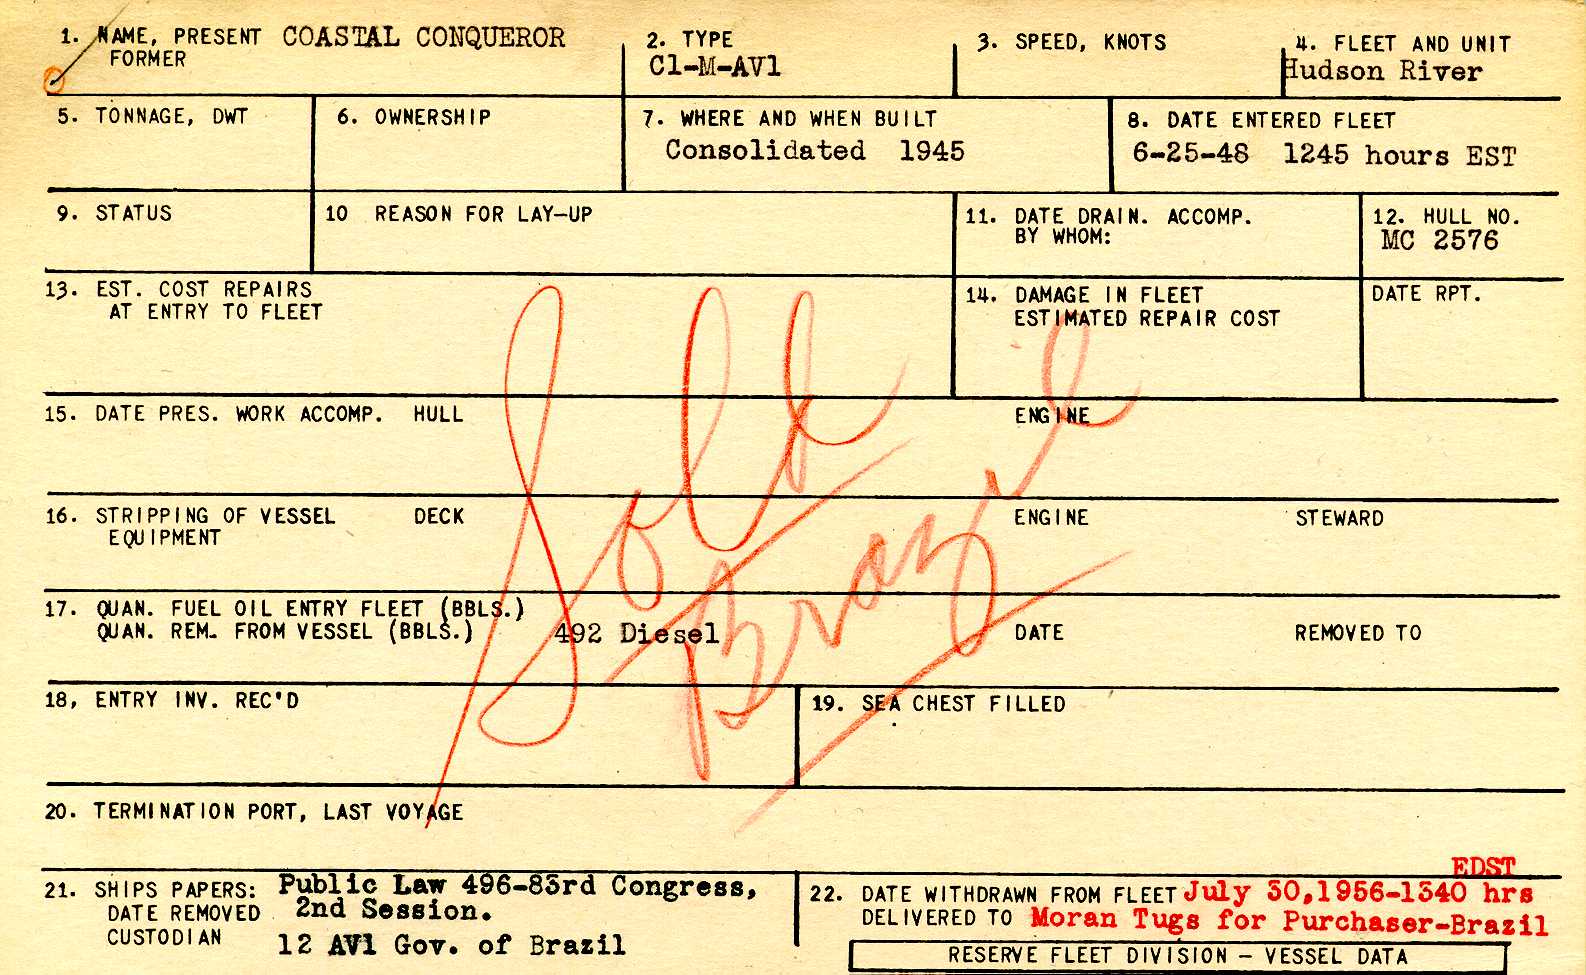 1. NAME, PRESENT COASTAL CONQUEROR
FORMER
2. TYPE
C1-M-AV1
3. SPEED, KNOTS
4. FLEET AND UNIT
Hudson River
5. TONNAGE, DWT
6. OWNERSHIP
7. WHERE AND WHEN BUILT
Consolidated 1945
8. DATE ENTERED FLEET
6-25-48 1245 hours EST
9. STATUS
10 REASON FOR LAY-UP
11. DATE DRAIN. ACCOMP.
BY WHOM:
12. HULL NO.
MC 2576
13. EST. COST REPAIRS
AT ENTRY TO FLEET
14. DAMAGE IN FLEET
ESTIMATED REPAIR COST
DATE RPT.
Sold
Brazil
15. DATE PRES. WORK ACCOMP. HULL ENGINE
16. STRIPPING OF VESSEL DECK ENGINE STEWARD
EQUIPMENT
17. QUAN. FUEL OIL ENTRY FLEET (BBLS.)
QUAN. REM. FROM VESSEL (BBLS.) 492 Diesel DATE REMOVED TO
18, ENTRY INV. REC'D
19. SEA CHEST FILLED
20. TERMINATION PORT, LAST VOYAGE
21. SHIPS PAPERS: Public Law 496-83rd Congress,
DATE REMOVED 2nd Session.
CUSTODIAN 12 AV1 Gov. of Brazil
EDST
22. DATE WITHDRAWN FROM FLEET July 30,1956-1340 hrs
DELIVERED TO Moran Tugs for Purchaser-Brazil
RESERVE FLEET DIVISION - VESSEL DATA